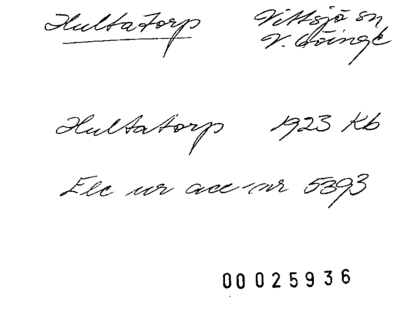 Hultatorp Vittsjö sn
V. Göinge
Hultatorp 1923 Kb
Exc ur acc-nr 5393
00025936